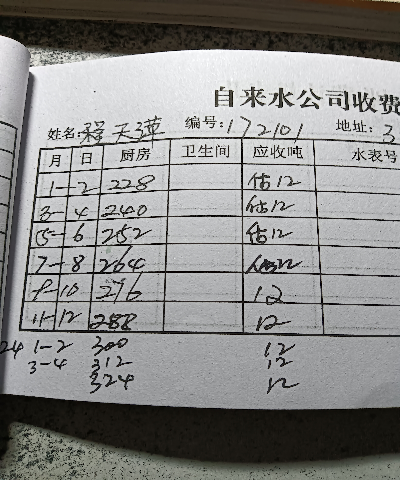 自来水公司收费
姓名: 程天莲 编号: 172101 地址: 3
月 日 厨房 卫生间 应收吨 水表号
1-2 228 估12
3-4 240 估12
5-6 252 估12
7-8 264 估12
9-10 276 12
11-12 288 12
24 1-2 300 12
3-4 312 12
324 12